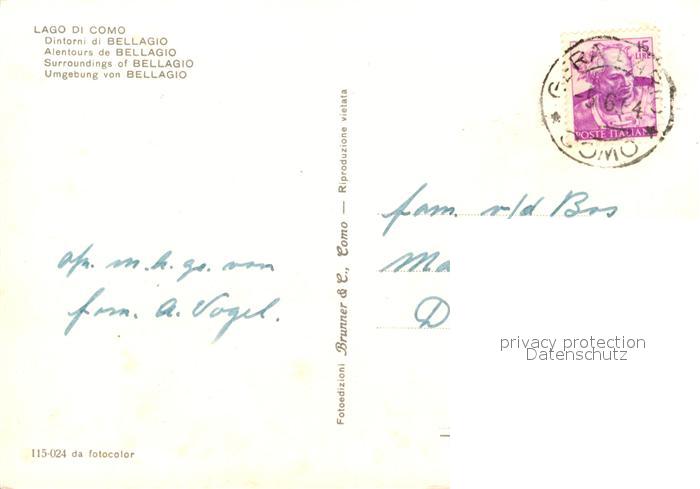 LAGO DI COMO
Dintorni di BELLAGIO
Alentours de BELLAGIO
Surroundings of BELLAGIO
Umgebung von BELLAGIO
15
LIRE
POSTE ITALIANE
GERA LARIO
COMO
fam. v/d Bos
Ma
D
m. h. gr. van
fam. A. Vogel.
Fotoedizioni Brunner & C., Como — Riproduzione vietata
privacy protection
Datenschutz
115-024 da fotocolor